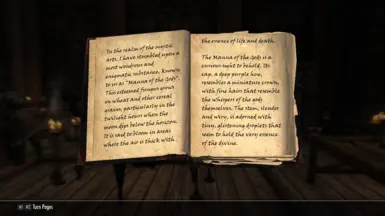 In the realm of the mystic
arts, I have stumbled upon a
most wondrous and
enigmatic substance, known
to us as "Manna of the Gods".
This esteemed fungus grows
on wheat and other cereal
grains, particularly in the
twilight hours when the
moon dips below the horizon.
It is said to bloom in areas
where the air is thick with
the essence of life and death.
The Manna of the Gods is a
curious sight to behold. Its
cap, a deep purple hue,
resembles a miniature crown,
with fine hairs that resemble
the whispers of the gods
themselves. The stem, slender
and wiry, is adorned with
tiny, glistening droplets that
seem to hold the very essence
of the divine.
Turn Pages